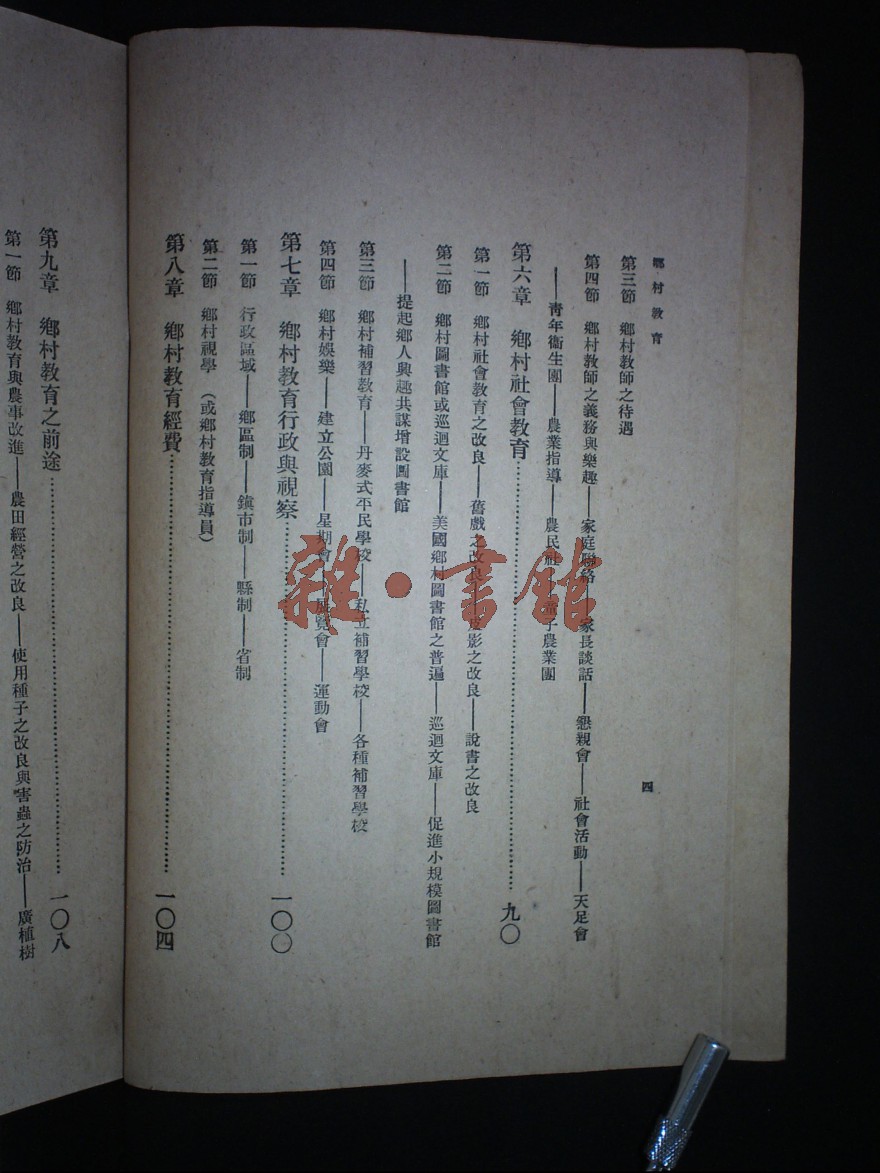 鄉村教育
四
第三節 鄉村教師之待遇
第四節 鄉村教師之義務與樂趣——家庭聯絡——家長談話——懇親會——社會活動——天足會
——青年衞生團——農業指導——農民社——童子農業團
第六章 鄉村社會教育 九〇
第一節 鄉村社會教育之改良——舊戲之改良——皮影之改良——說書之改良
第二節 鄉村圖書館或巡迴文庫——美國鄉村圖書館之普遍——巡迴文庫——促進小規模圖書館
——提起鄉人興趣共謀增設圖書館
第三節 鄉村補習教育——丹麥式平民學校——私立補習學校——各種補習學校
第四節 鄉村娛樂——建立公園——星期會——展覽會——運動會
第七章 鄉村教育行政與視察 一〇〇
第一節 行政區域——鄉區制——鎮市制——縣制——省制
第二節 鄉村視學（或鄉村教育指導員）
第八章 鄉村教育經費 一〇四
第九章 鄉村教育之前途 一〇八
第一節 鄉村教育與農事改進——農田經營之改良——使用種子之改良與害蟲之防治——廣植樹
雜·書館